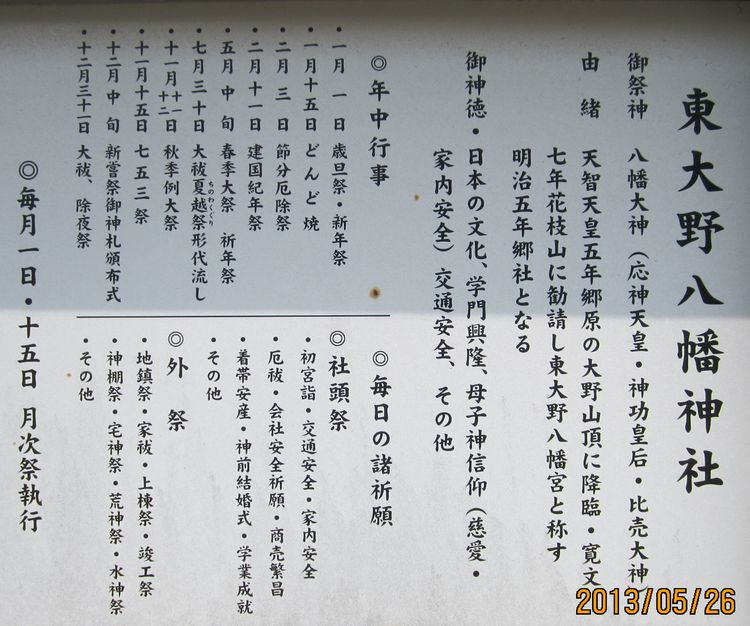 東大野八幡神社
御祭神 八幡大神(応神天皇・神功皇后・比売大神)
由緒 天智天皇五年郷原の大野山頂に降臨・寛文
七年花枝山に勧請し東大野八幡宮と称す
明治五年郷社となる
御神徳・日本の文化、学門興隆、母子神信仰(慈愛・
家内安全)交通安全、その他
◎年中行事
・一月一日 歳旦祭・新年祭
・一月十五日 どんど焼
・二月三日 節分厄除祭
・二月十一日 建国紀年祭
・五月中旬 春季大祭 祈年祭
・七月三十日 大祓夏越祭形代流し
ちのわくぐり
・十一月十一十二日 秋季例大祭
・十一月十五日 七五三祭
・十二月中旬 新嘗祭御神札頒布式
・十二月三十一日 大祓、除夜祭
◎毎日の諸祈願
◎社頭祭
・初宮詣・交通安全・家内安全
・厄祓・会社安全祈願・商売繁昌
・着帯安産・神前結婚式・学業成就
・その他
◎外祭
・地鎮祭・家祓・上棟祭・竣工祭
・神棚祭・宅神祭・荒神祭・水神祭
・その他
◎毎月一日・十五日 月次祭執行
2013/05/26